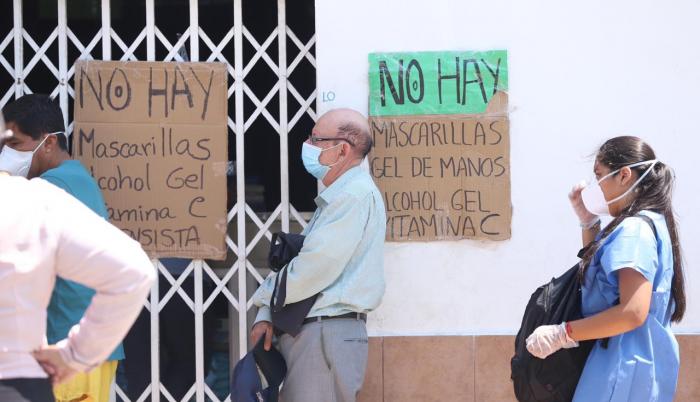 NO HAY
Mascarillas
Alcohol Gel
Vitamina C
ENSISTA
LO
NO HAY
MASCARILLAS
GEL DE MANOS
ALCOHOL GEL
VITAMINA C